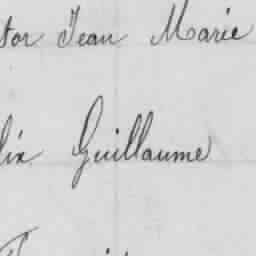 tor Jean Marie
lix Guillaume